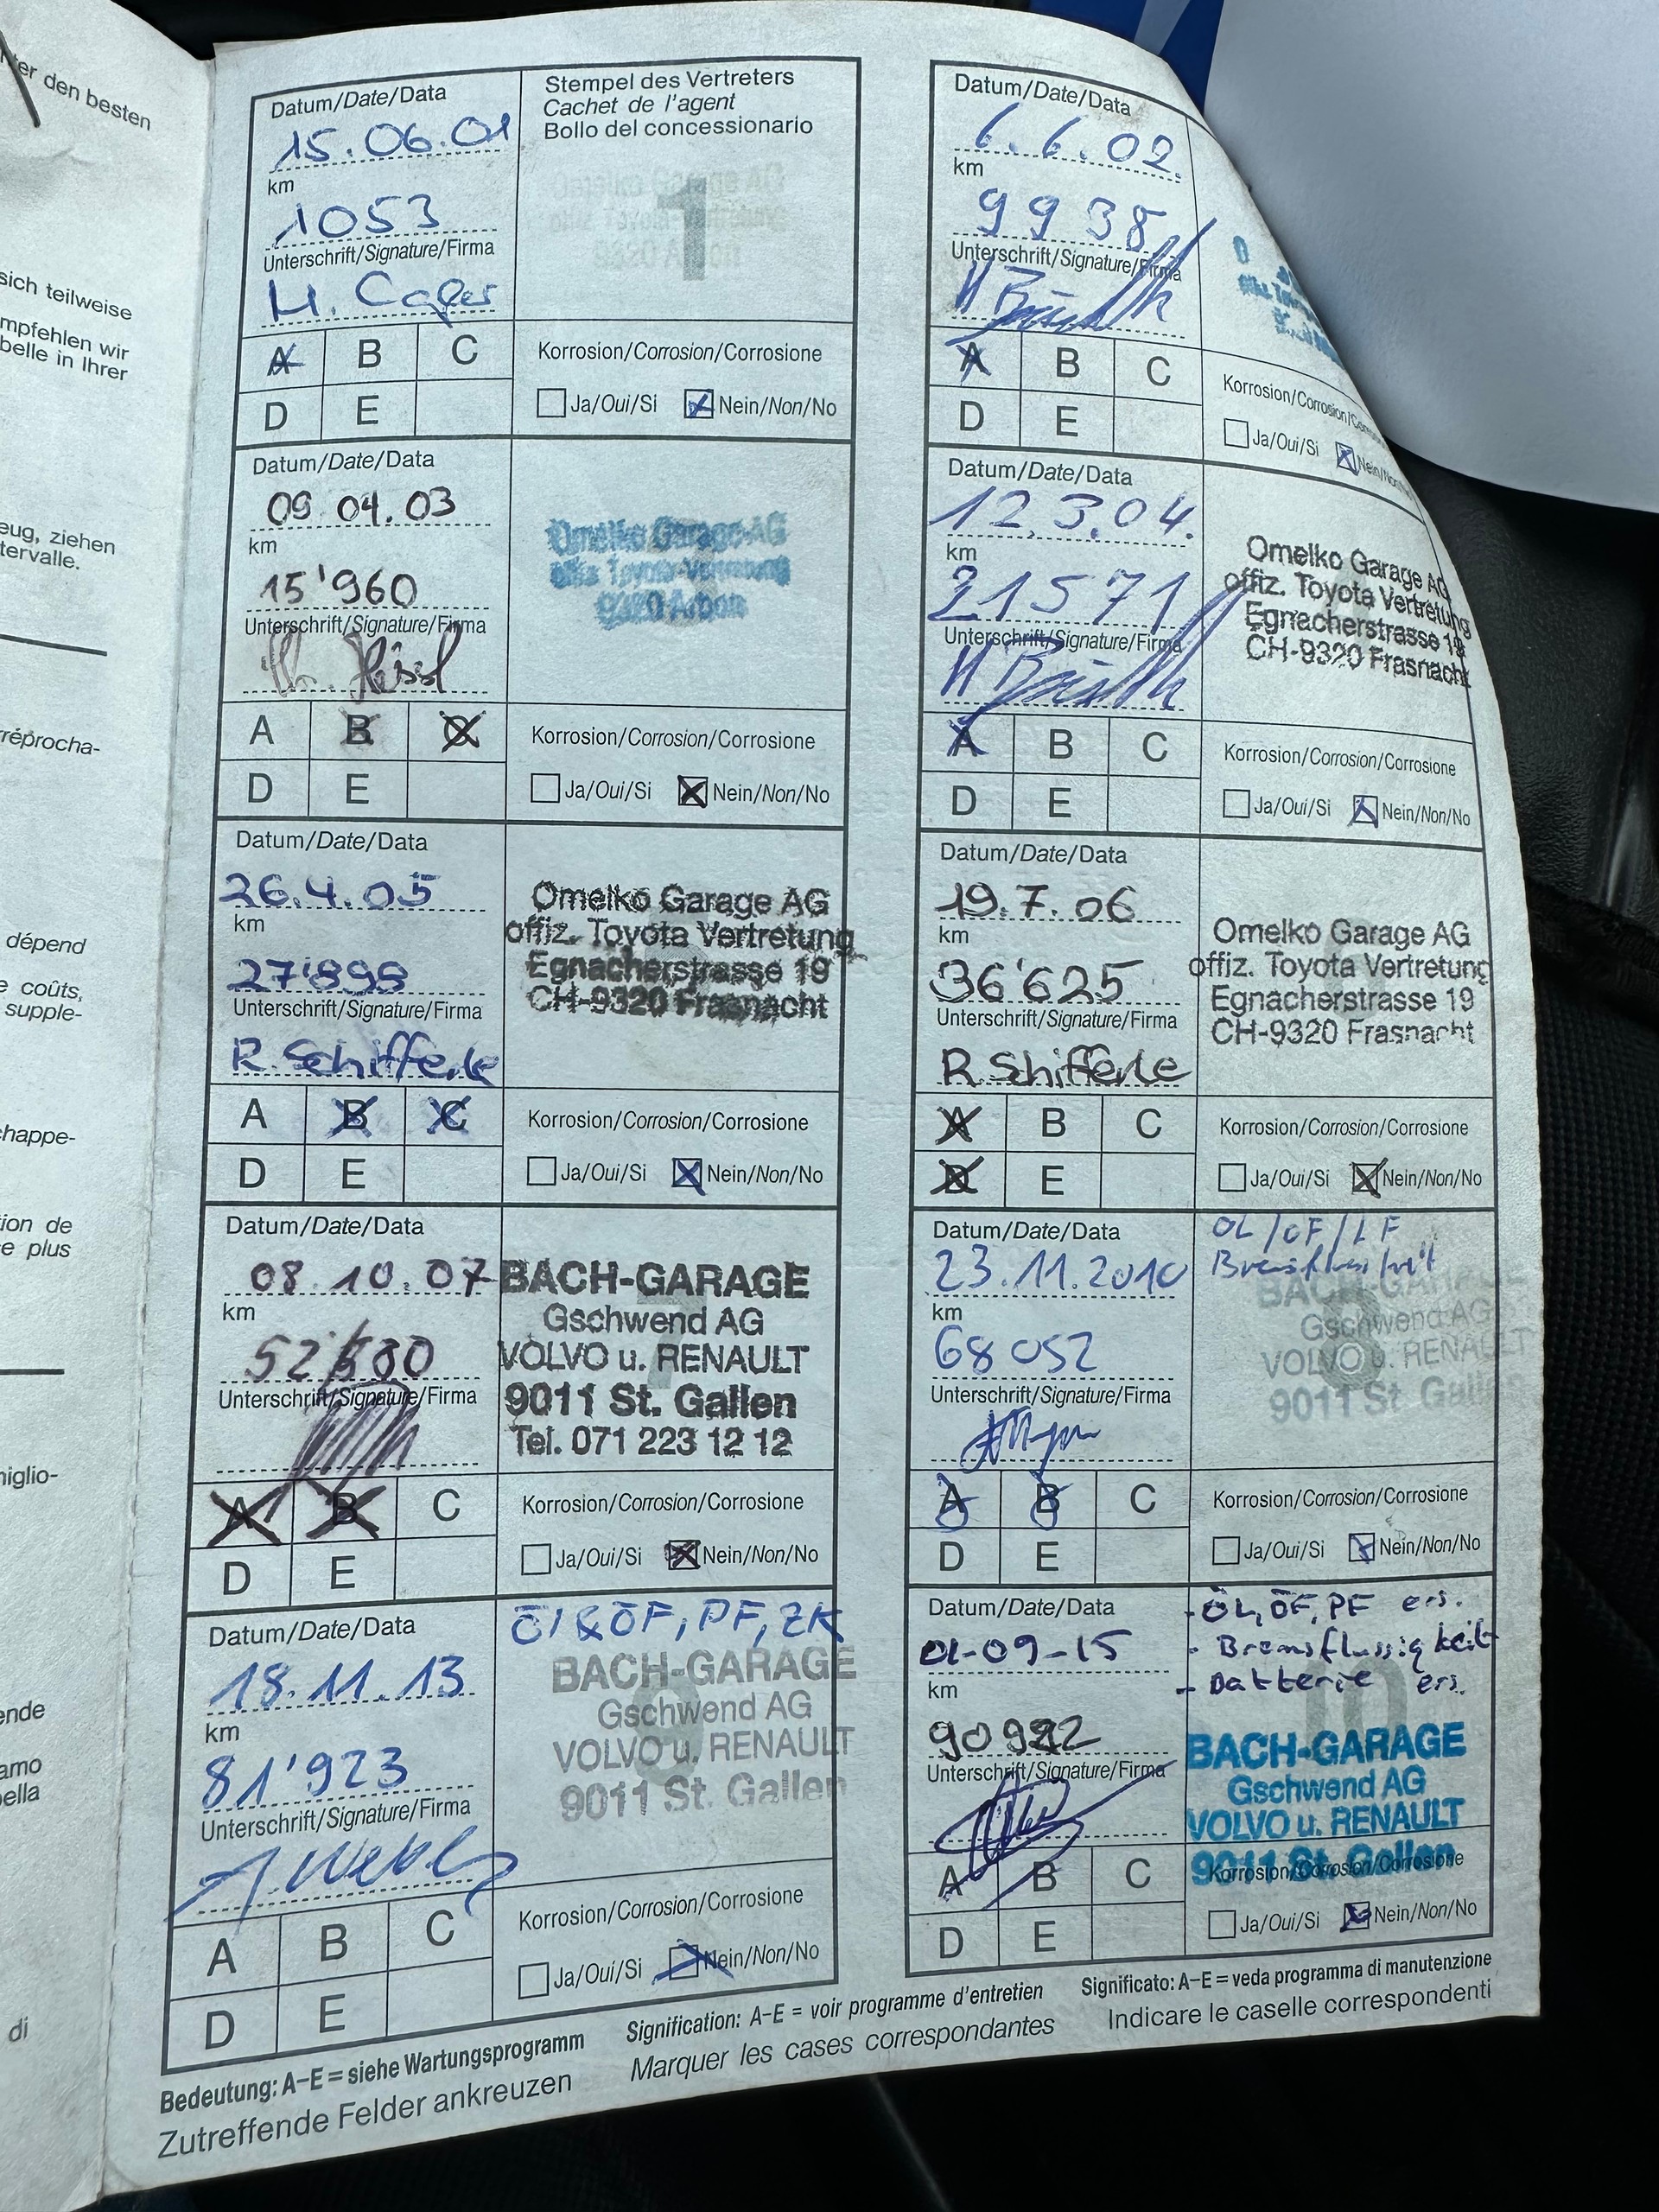 ter den besten
sich teilweise
mpfehlen wir
belle in Ihrer
eug, ziehen
tervalle.
rréprocha-
dépend
e coûts,
supple-
chappe-
tion de
e plus
niglio-
ende
amo
bella
di
Datum/Date/Data
15.06.01
km
1053
Unterschrift/Signature/Firma
Stempel des Vertreters
Cachet de l'agent
Bollo del concessionario
1
A B C
D E
Korrosion/Corrosion/Corrosione
Ja/Oui/Si Nein/Non/No
Datum/Date/Data
6.6.02.
km
9938
Unterschrift/Signature/Firma
A B C
D E
Korrosion/Corrosion/Corrosione
Ja/Oui/Si Nein/Non/No
Datum/Date/Data
09 04.03
km
15'960
Unterschrift/Signature/Firma
Omelko Garage AG
offiz. Toyota-Vertretung
9320 Arbon
A B C
D E
Korrosion/Corrosion/Corrosione
Ja/Oui/Si Nein/Non/No
Datum/Date/Data
12.3.04.
km
21571
Unterschrift/Signature/Firma
Omelko Garage AG
offiz. Toyota Vertretung
Egnacherstrasse 19
CH-9320 Frasnacht
A B C
D E
Korrosion/Corrosion/Corrosione
Ja/Oui/Si Nein/Non/No
Datum/Date/Data
26.4.05
km
27'898
Unterschrift/Signature/Firma
R. Schifferle
Omelko Garage AG
offiz. Toyota Vertretung
Egnacherstrasse 19
CH-9320 Frasnacht
A B C
D E
Korrosion/Corrosion/Corrosione
Ja/Oui/Si Nein/Non/No
Datum/Date/Data
19.7.06
km
36'625
Unterschrift/Signature/Firma
R. Schifferle
Omelko Garage AG
offiz. Toyota Vertretung
Egnacherstrasse 19
CH-9320 Frasnacht
A B C
D E
Korrosion/Corrosion/Corrosione
Ja/Oui/Si Nein/Non/No
Datum/Date/Data
08.10.07
km
Unterschrift/Signature/Firma
BACH-GARAGE
Gschwend AG
VOLVO u. RENAULT
9011 St. Gallen
Tel. 071 223 12 12
A B C
D E
Korrosion/Corrosion/Corrosione
Ja/Oui/Si Nein/Non/No
Datum/Date/Data
23.11.2010
km
68 052
Unterschrift/Signature/Firma
ÖL/ÖF/LF
BACH-GARAGE
Gschwend AG
VOLVO u. RENAULT
9011 St. Gallen
8
A B C
D E
Korrosion/Corrosion/Corrosione
Ja/Oui/Si Nein/Non/No
Datum/Date/Data
18.11.13
km
81'923
Unterschrift/Signature/Firma
Öl & ÖF, PF, ZK
BACH-GARAGE
Gschwend AG
VOLVO u. RENAULT
9011 St. Gallen
A B C
D E
Korrosion/Corrosion/Corrosione
Ja/Oui/Si Nein/Non/No
Datum/Date/Data
01-09-15
km
Unterschrift/Signature/Firma
- ÖL, ÖF, PF ers.
- Bremsflussigkeit
- Batterie ers.
10
BACH-GARAGE
Gschwend AG
VOLVO u. RENAULT
9011 St. Gallen
A B C
D E
Korrosion/Corrosion/Corrosione
Ja/Oui/Si Nein/Non/No
Bedeutung: A–E = siehe Wartungsprogramm
Zutreffende Felder ankreuzen
Signification: A–E = voir programme d'entretien
Marquer les cases correspondantes
Significato: A–E = veda programma di manutenzione
Indicare le caselle correspondenti